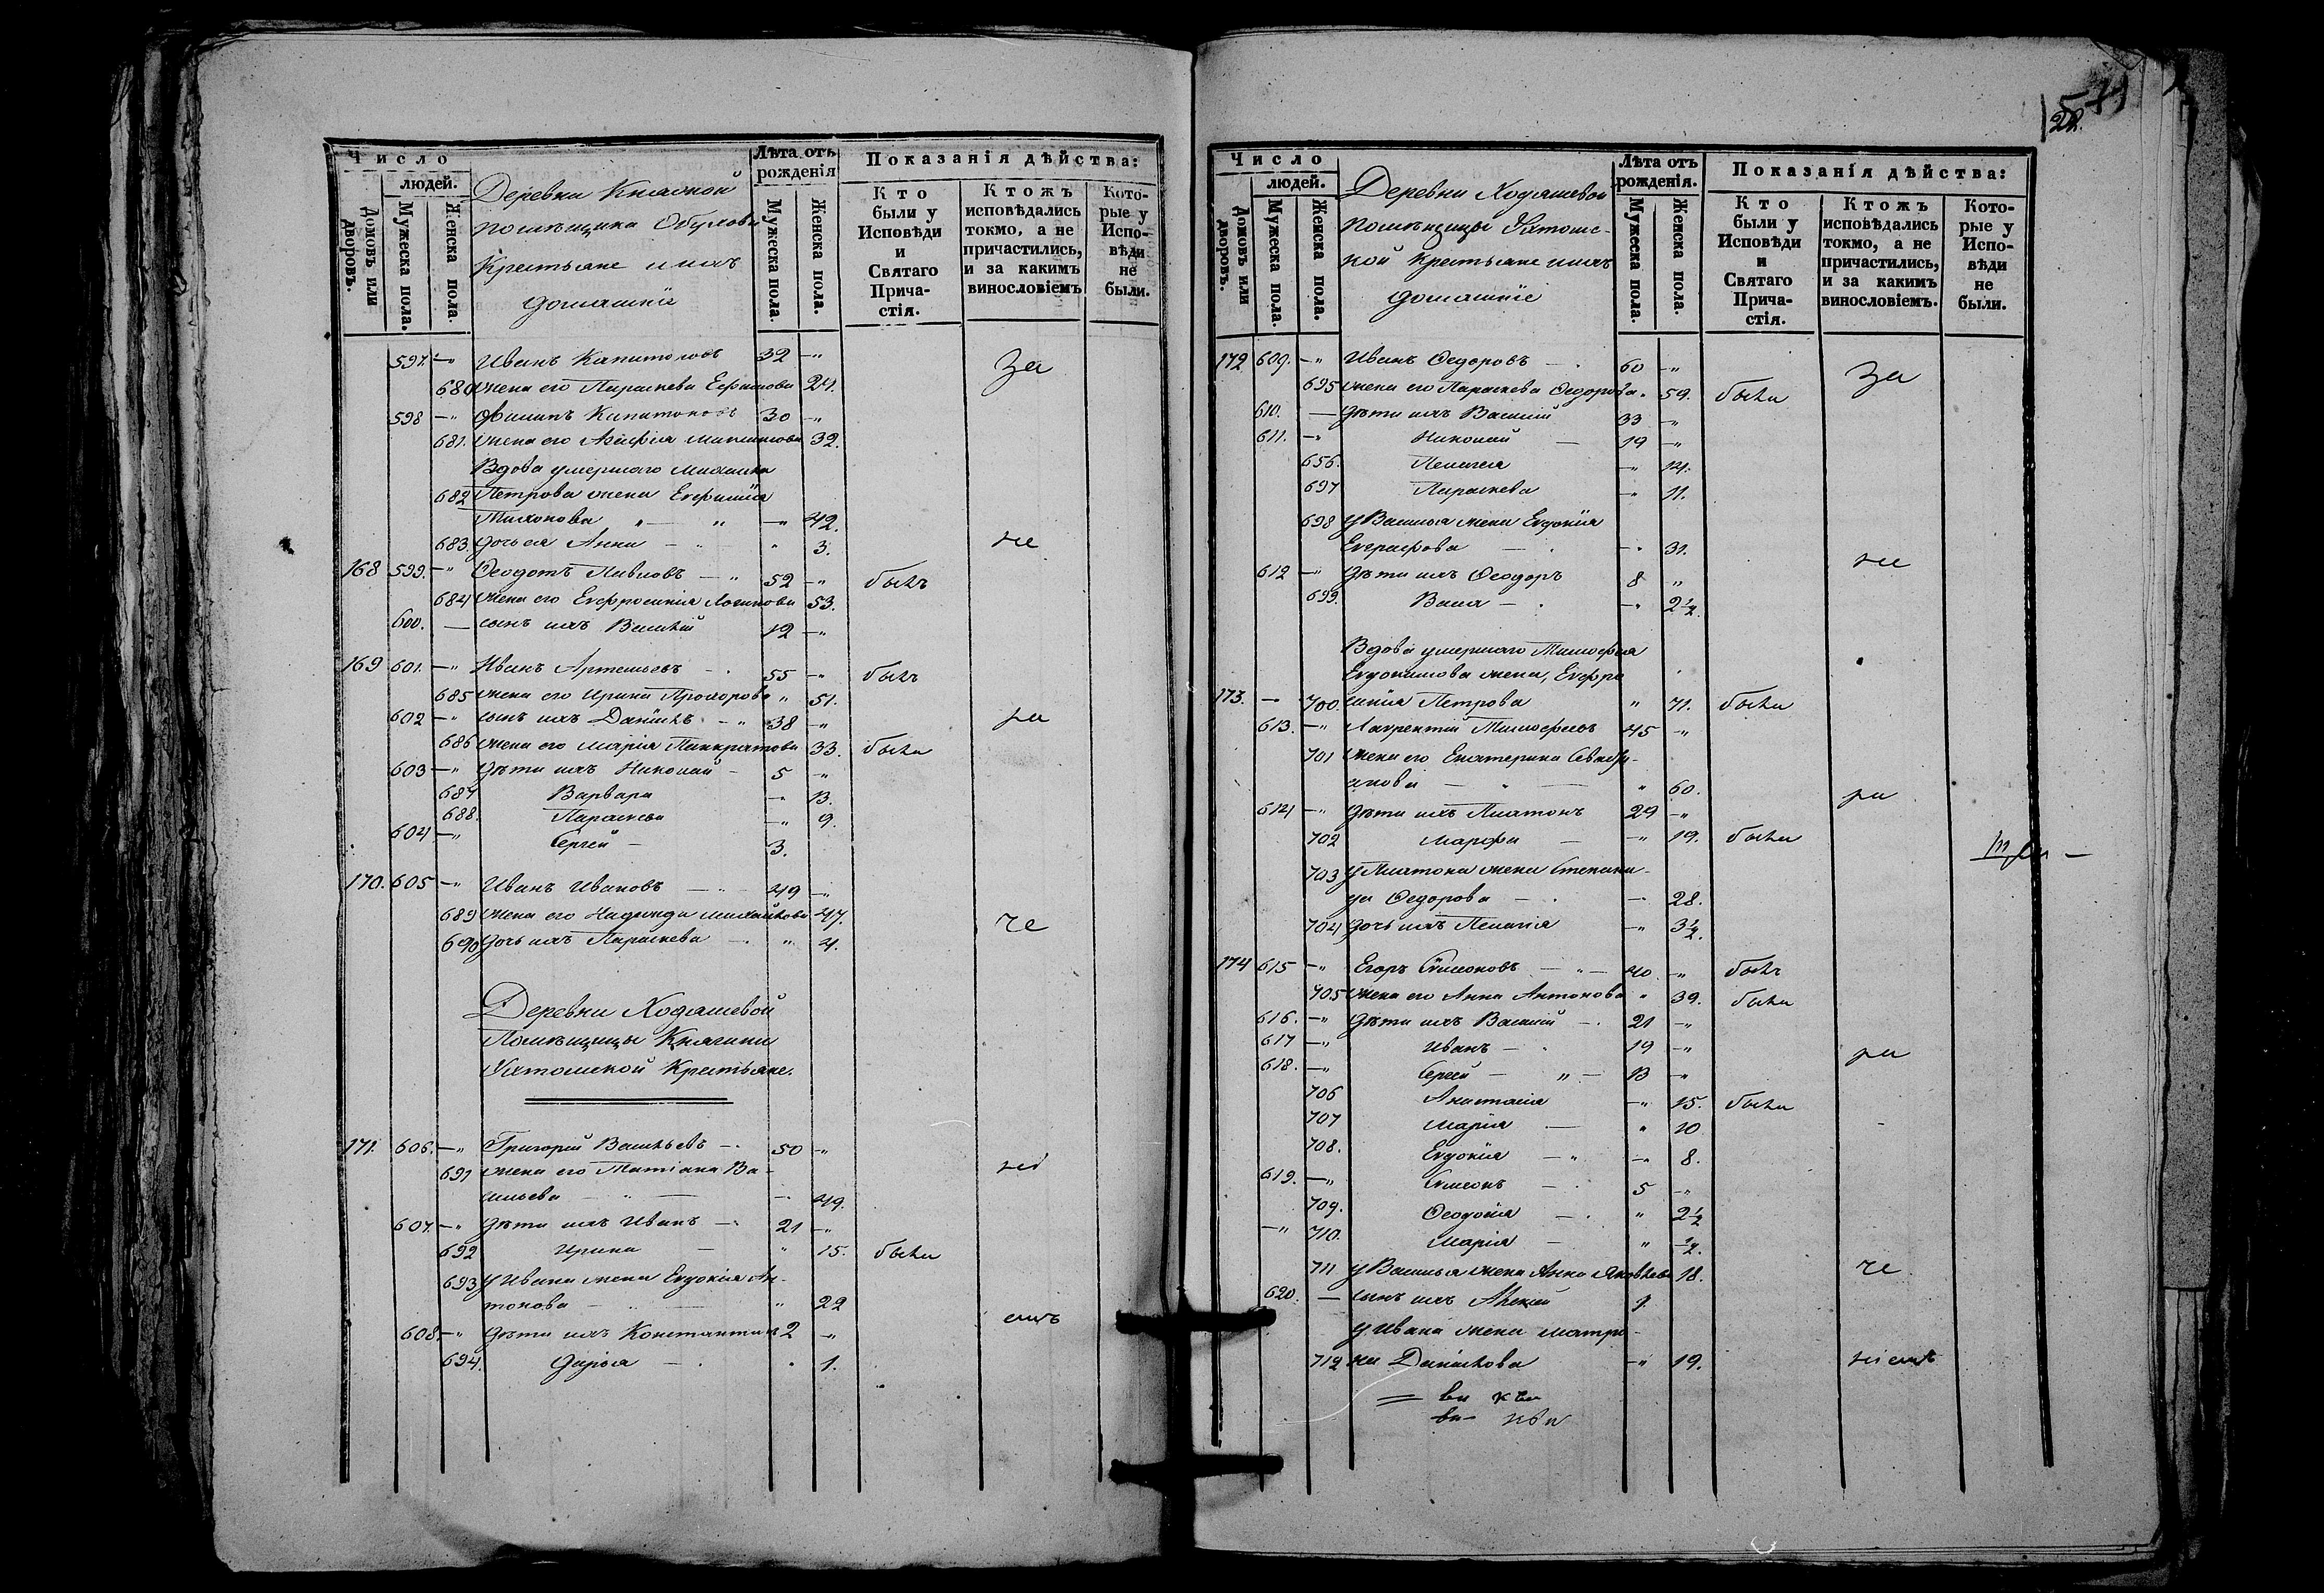 Число
людей.
Домовъ или дворовъ.
Мужеска пола.
Женска пола.
Деревни
помѣщика Обухова
Крестьяне и ихъ
домашніе
Лѣта отъ рожденія
Мужеска пола.
Женска пола.
Показанія дѣйства:
Кто были у Исповѣди и Святаго Причастія.
Ктожъ исповѣдались токмо, а не причастились, и за какимъ винословіемъ
Которые у Исповѣди не были.
597. —" Иванъ Капитоновъ 32 —" За
680 жена его Параскева Ефимова 24.
598 —" Филипъ Капитоновъ 30 —"
681. жена его Максимова 32.
Вдова умершаго Михаила
682 Петрова жена Евфимія
Тихонова " — " —" 42.
683. дочь ея Анна — " " 3. не
168 599. —" Ѳеодотъ Павловъ — " 52 —" былъ
684 жена его Евфросинія Логинова 53.
600. — сынъ ихъ Василій 12 —"
169 601. —" Иванъ Артемьевъ 55 —" былъ
685 жена его Ирина Прохорова " 51.
602 —" сынъ ихъ Даніилъ — " 38 —" ра
686 жена его Марія Панкратова 33. была
603 —" дѣти ихъ Николай — 5 —"
687 Варвара —" 13.
688. Параскева —" 9.
604 —" Сергей — 3.
170. 605 —" Ивань Ивановъ — " 49 —"
689 жена его Надежда Михайлова 47. че
690 дочь ихъ Параскева — " 4.
Деревни Ходяшевой
Помѣщицы Княгини
Ухтомской Крестьяне.
171. 606. —" Григорій Васильевъ — 50 —"
691 жена его Татіана Ва- не
сильева — " — —" 49.
607. —" дѣти ихъ Иванъ — 21 —"
692 Ирина — " 15. была
693 у Ивана жена Евдокія Ан-
тонова — " 22
608. —" дѣти ихъ Константинъ 2 —" емъ
694. Дарья — " 1.
57
Число
людей.
Домовъ или дворовъ.
Мужеска пола.
Женска пола.
Деревни Ходяшевой
помѣщицы Ухтомс-
кой крестьяне и ихъ
домашніе
Лѣта отъ рожденія.
Мужеска пола.
Женска пола.
Показанія дѣйства:
Кто были у Исповѣди и Святаго Причастія.
Ктожъ исповѣдались токмо, а не причастились, и за какимъ винословіемъ.
Которые у Исповѣди не были.
172 609. —" Иванъ Ѳедоровъ — 60 —" За
695 жена его Параскева Ѳедорова " 59. была
610. — дѣти ихъ Василій 33 —"
611. —" Николай — 19 —"
656. Пелагея —" 14.
697 Параскева —" 11.
698 у Василья жена Евдокія
Евграфова — —" 31. не
612 —" дѣти ихъ Ѳеодоръ 8 "
699. Васса — —" 2½.
Вдова умершаго Тимофея
Евдокимова жена, Евфро
173. — 700. синія Петрова " 71. была
613. —" Лаврентій Тимофеевъ 45 —"
701 жена его Екатерина Севасті-
анова — " — " 60. ра
614 —" дѣти ихъ Платонъ 29 —"
702 Марфа — —" 19. была
703 у Платона жена Степани-
да Ѳедорова — —" 28.
704 дочь ихъ Пелагія —" 3½.
174 615 —" Егоръ Симеоновъ — " — 40 —" былъ
705 жена его Анна Антонова " 39. была
616. —" дѣти ихъ Василій — 21 —"
617 —" Иванъ — 19 —" ра
618. —" Сергей — " — 13 —"
706 Анастасія —" 15. была
707 Марія — " 10
708. Евдокія — " —" 8.
619. —" Симеонъ — 5 —"
709. Ѳеодосія — " 2½
—" 710. Марія — " ½.
711 у Василья жена Анна Яковлева 18. че
620. — сынъ ихъ Алексей
у Ивана жена Матре-
712 на Данилова —" 19. ніемъ